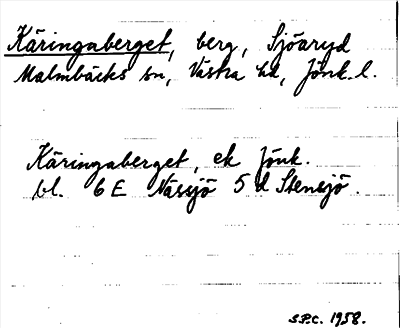 Käringaberget, berg, Sjöaryd
Malmbäcks sn, Västra hd, Jönk. l.
Käringaberget, ek Jönk.
bl. 6 E Nässjö 5 d Stensjö.
S.P.C. 1958.